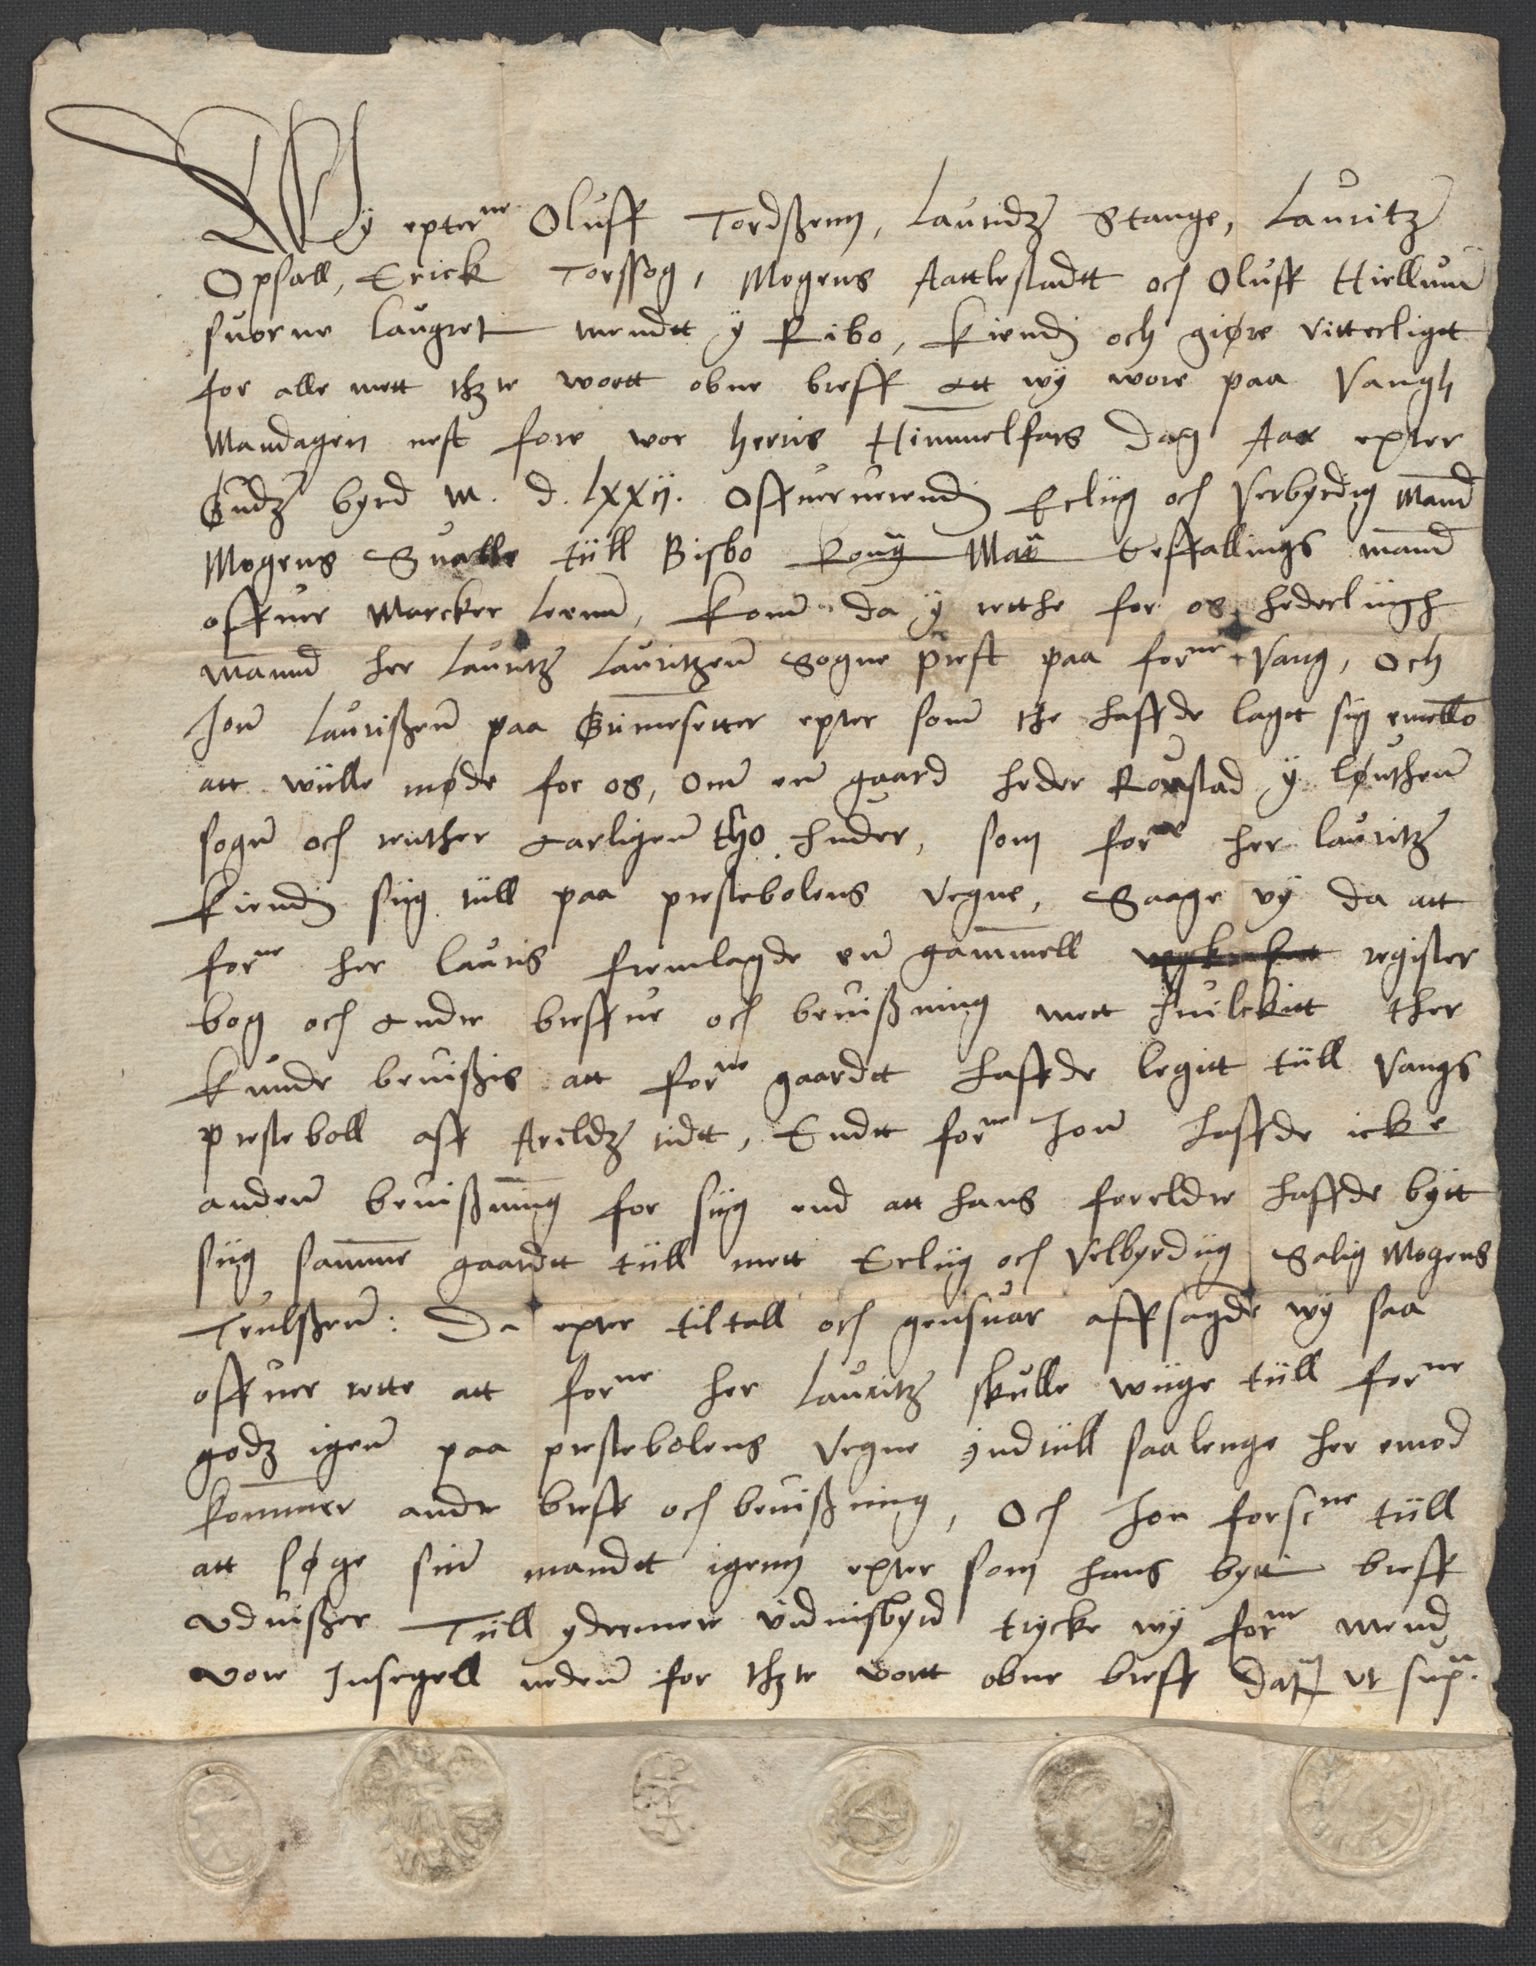 Wÿ epterne Oluff Tordßenn, Lauridz Stange, Lauritz
Opsall, Erick Torssog, Mogens Aattlestadtt och Oluff Hiellum
suorne laugret mendtt ÿ Ribo, Kiendis och giøre vitterligtt
for alle mett thzte wortt obne breff att wÿ wore paa Vangh
Mandagen nest fore wor herris Himmelfars dag Aar epter
Gudz byrd M. d. lxxij. Offueruerendis Erliig och Velbyrdig Mand
Mogens Sualle tiill Bisbo Konÿ Matt beffallings mand
offuer Marcker leenn, Kom da ÿ retthe for os hederliigh
mannd her lauritz lauritzenn Sogne prest paa forne Vang, Och
Jon Laurißenn paa Grimesetter epter som the haffde laget siig emello
att wiille møde for os, om enn gaard heder Roustad ÿ løuthenn
sogn och renther aarligenn tho huder, som forne her lauritz
Kiendis siig tiill paa prestebolens vegne, Saage vÿ da att
forne her lauris fremlagde en gammell register
bog och andre breffue och beuißning mett huilckitt ther
kunde beuißis att forne gaardtt haffde legitt tiill Vangs
presteboll aff Arildz tidtt, Endtt forne Jon haffde icke
anden beuißning for siig end att hans foreldre haffde bÿtt
siig samme gaardtt tiill mett Erliig och Velbyrdiig Salig Mogens
Trulßenn: Da epter tiltall och gensuar affsagde wÿ saa
offuer rette att forne her Lauritz skulle wiige tiill forne
godz igenn paa prestebolens vegne indtiill saalenge her emod
kommer andr breff och beuißning, Och Jon forscne tiill
att søge sin mandtt igenn epter som hans bytte breff
vduißer Tiill ydremere vidnisbyrd trycke wÿ forne mend
vore Insegell nedenn for thzte vortt obne breff Datum vt supra.